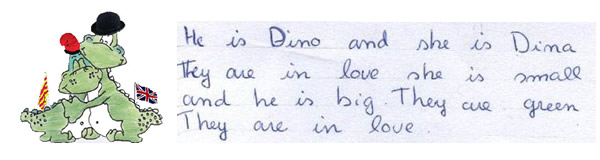 He is Dino and she is Dina
They are in love she is small
and he is big. They are green
They are in love.